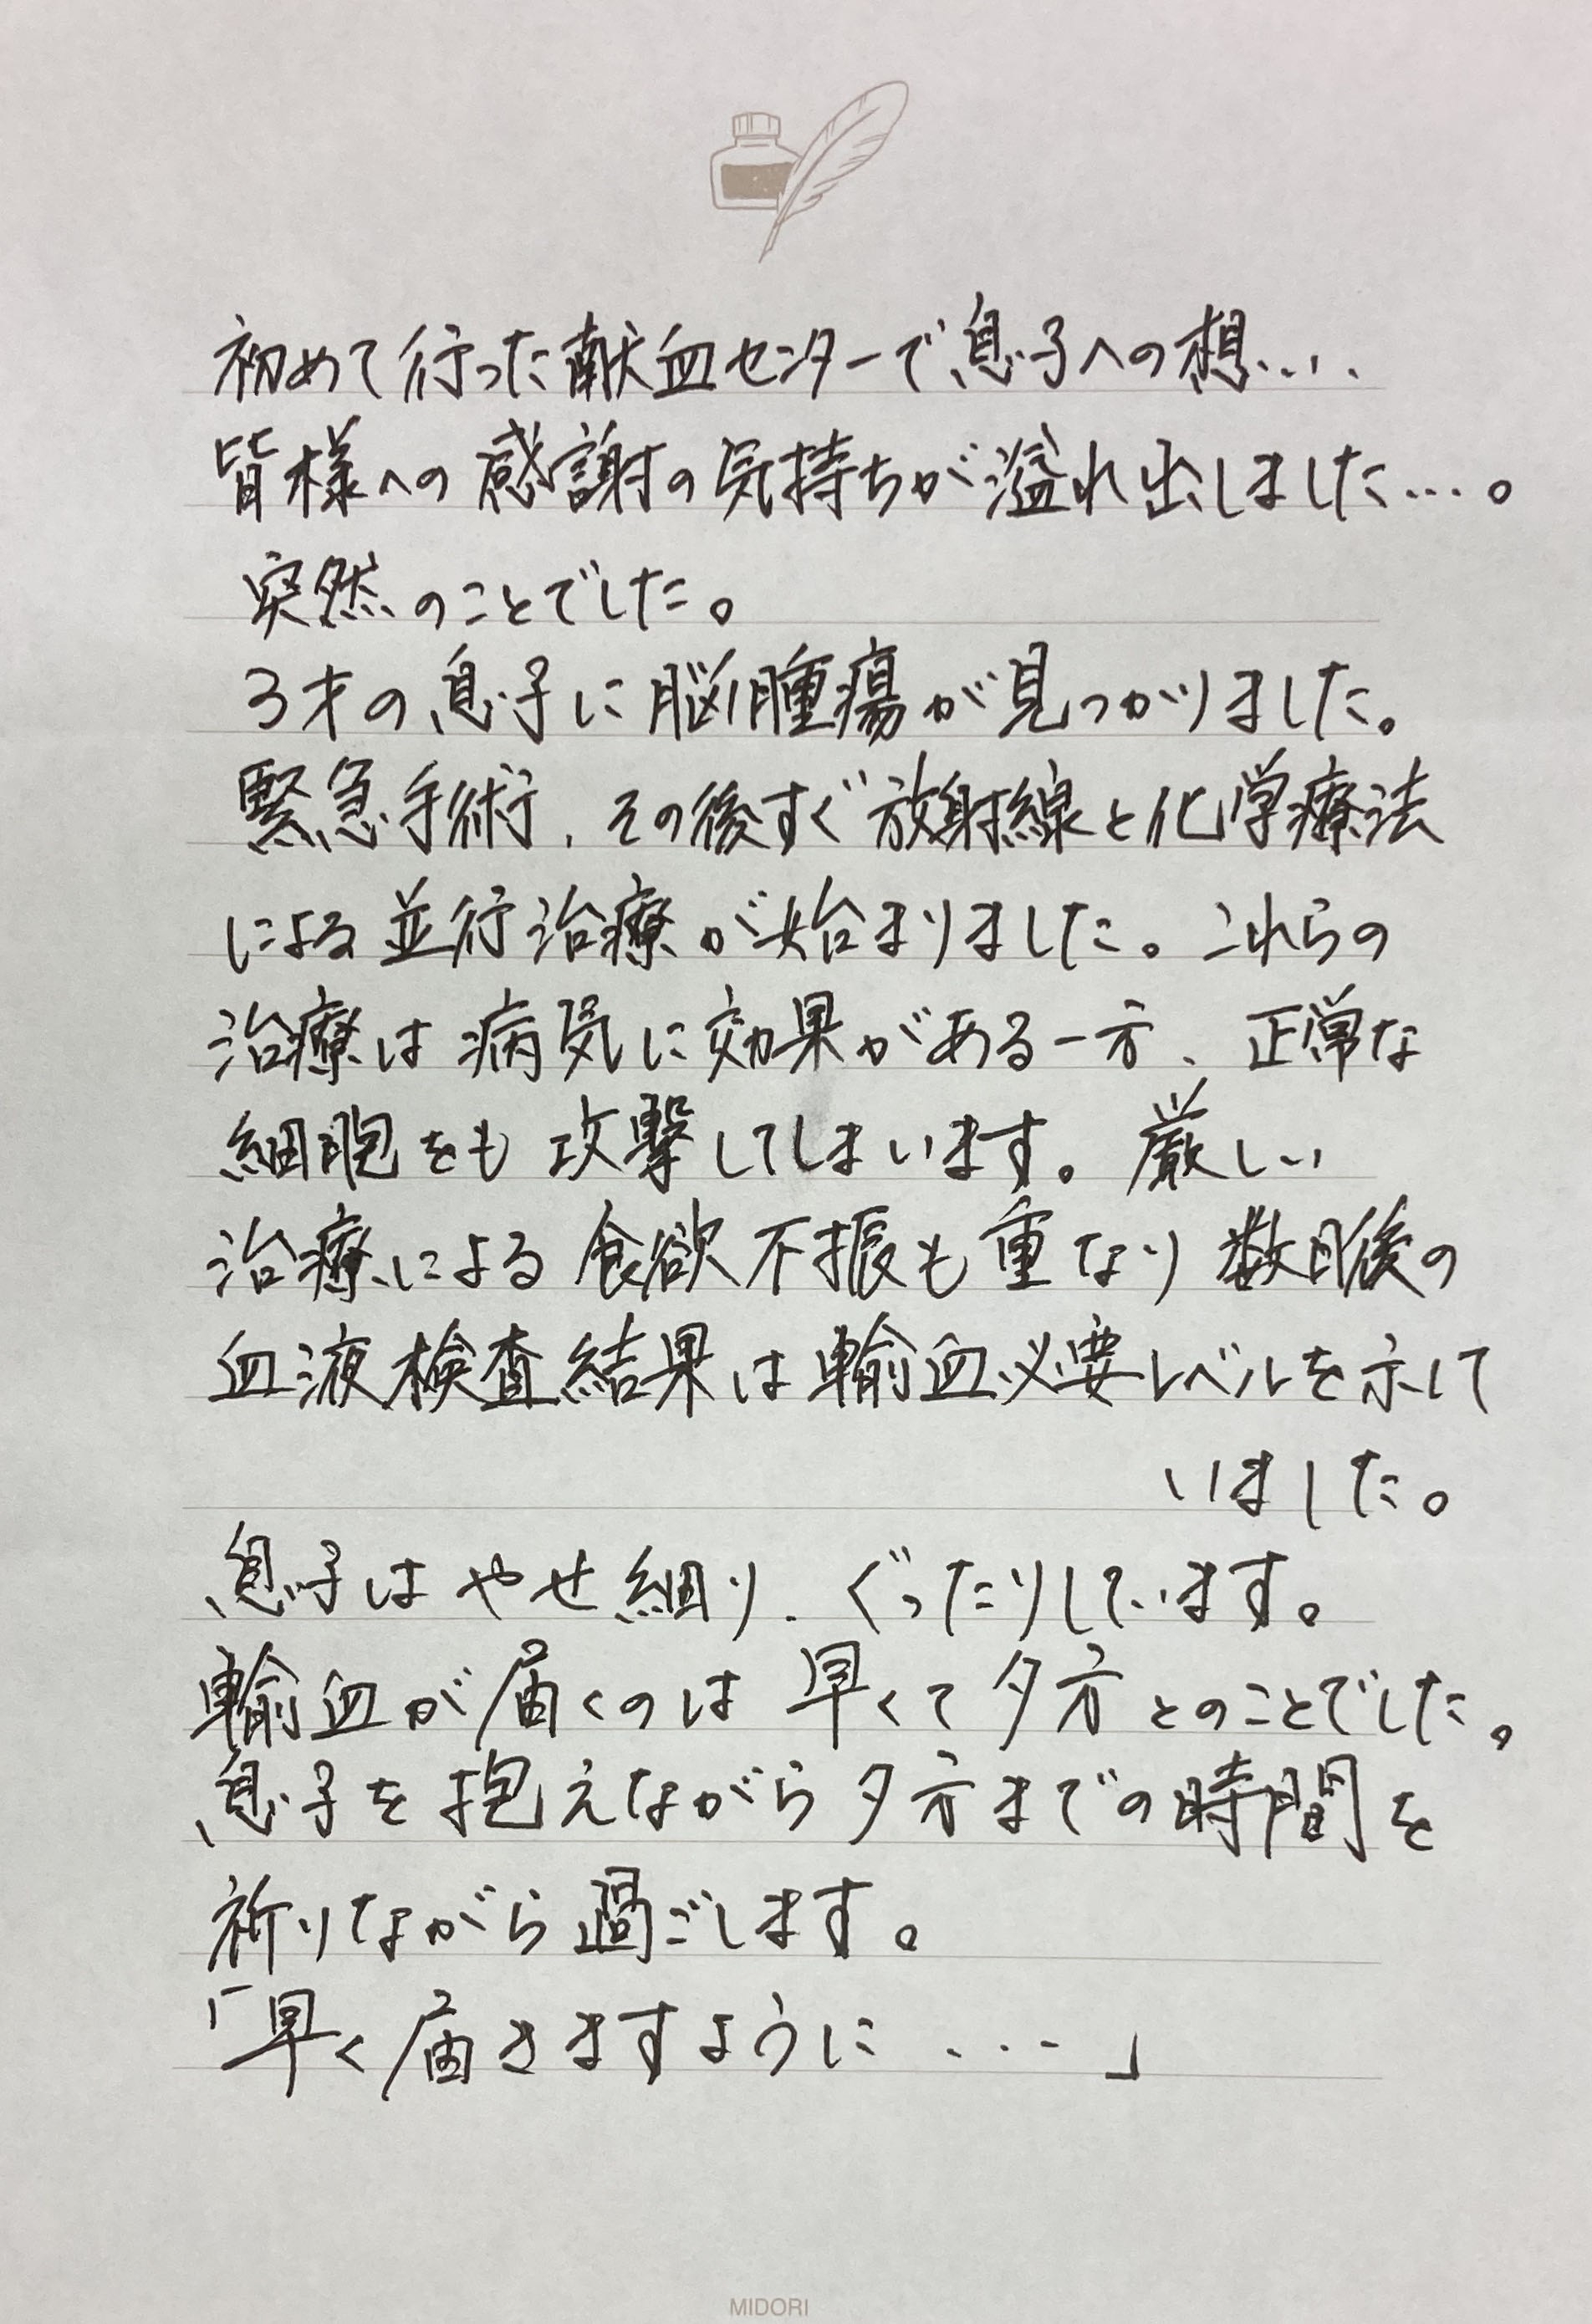 初めて行った献血センターで息子への想い、
皆様への感謝の気持ちが溢れ出しました…。
突然のことでした。
3才の息子に脳腫瘍が見つかりました。
緊急手術、その後すぐ放射線と化学療法
による並行治療が始まりました。これらの
治療は病気に効果がある一方、正常な
細胞をも攻撃してしまいます。厳しい
治療による食欲不振も重なり数日後の
血液検査結果は輸血必要レベルを示して
いました。
息子はやせ細り、ぐったりしています。
輸血が届くのは早くて夕方とのことでした。
息子を抱えながら夕方までの時間を
祈りながら過ごします。
「早く届きますように・・・」
MIDORI